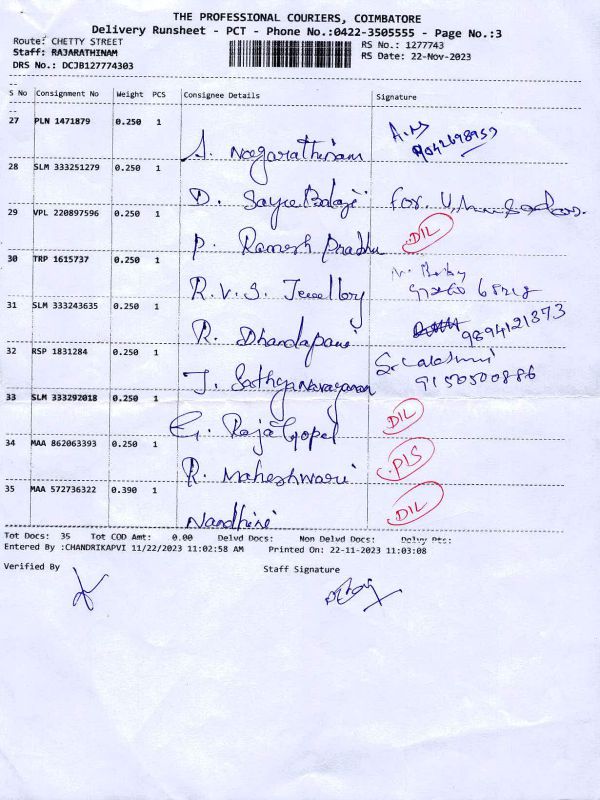 THE PROFESSIONAL COURIERS, COIMBATORE
Delivery Runsheet - PCT - Phone No.:0422-3505555 - Page No.:3
Route: CHETTY STREET RS No.: 1277743
Staff: RAJARATHINAM RS Date: 22-Nov-2023
DRS No.: DCJB127774303
S No Consignment No Weight PCS Consignee Details Signature
27 PLN 1471879 0.250 1
S. Nagarathinam
28 SLM 333251279 0.250 1
D. Sayee Balaji for.
29 VPL 220897596 0.250 1
P. Ramesh Prabhu DIL
30 TRP 1615737 0.250 1
R.V.S. Jewellery
31 SLM 333243635 0.250 1
R. Dhandapani 9894121373
32 RSP 1831284 0.250 1
J. Sathyanarayanan 9150500886
33 SLM 333292018 0.250 1
G. RajaGopel DIL
34 MAA 862063393 0.250 1
R. Maheshwari PLS
35 MAA 572736322 0.390 1
Nandhini DIL
Tot Docs: 35 Tot COD Amt: 0.00 Delvd Docs: Non Delvd Docs: Delvy Pts:
Entered By :CHANDRIKAPVI 11/22/2023 11:02:58 AM Printed On: 22-11-2023 11:03:08
Verified By Staff Signature